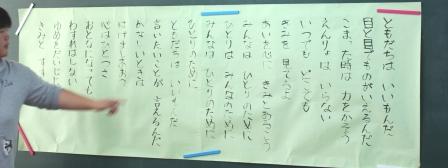 ともだちは いいもんだ
目と目でものがいえるんだ
こまった時は 力をかそう
えんりょは いらない
いつでも どこでも
きみを 見てるよ
あいを心に きみとあるこう
みんなは ひとりのために
ひとりは みんなのために
みんなは ひとりのために
ひとりのために
ともだちは いいもんだ
言いたいことが 言えるんだ
かなしいときは
はげましあおう
心はひとつさ
おとなになっても
わすれはしない
ゆめをだいじに
きみと